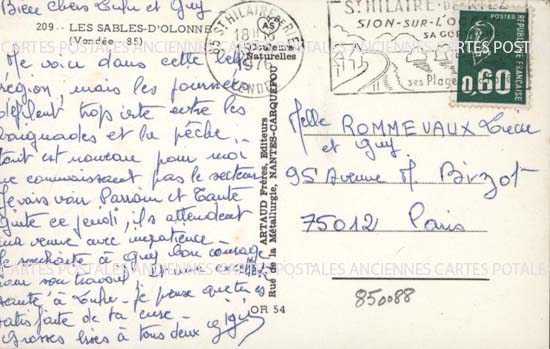 Bien chers Lulu et Guy
209. - LES SABLES-D'OLONNE
(Vendée - 85)
AS
Couleurs
Naturelles
Me voici dans cette belle
région, mais les journées
défilent trop vite entre les
baignades et la pêche.
tout est nouveau pour moi
ne connaissant pas le secteur
Je vais voir Parrain et Tante
ce jeudi, ils attendent
ma venue avec impatience -
Je souhaite à Guy bon courage
pour son travail
santé à Lulu - je pense que tu es
satisfaite de ta cure -
Grosses bises à tous deux Gigi
ARTAUD Frères, Editeurs
Rue de la Métallurgie, NANTES-CARQUEFOU
OR 54
85 ST HILAIRE DE RIEZ
18H
1976
VENDEE
ST HILAIRE-DE-RIEZ
SION-SUR-L'OCEAN
SA CO
ses Plages
0,60
REPUBLIQUE FRANÇAISE
Melle ROMMEVAUX Lucie
et Guy
95 Avenue M. Bizot
75012 Paris
850088
CARTES POSTALES ANCIENNES CARTES POSTALES ANCIENNES CARTES POTALES